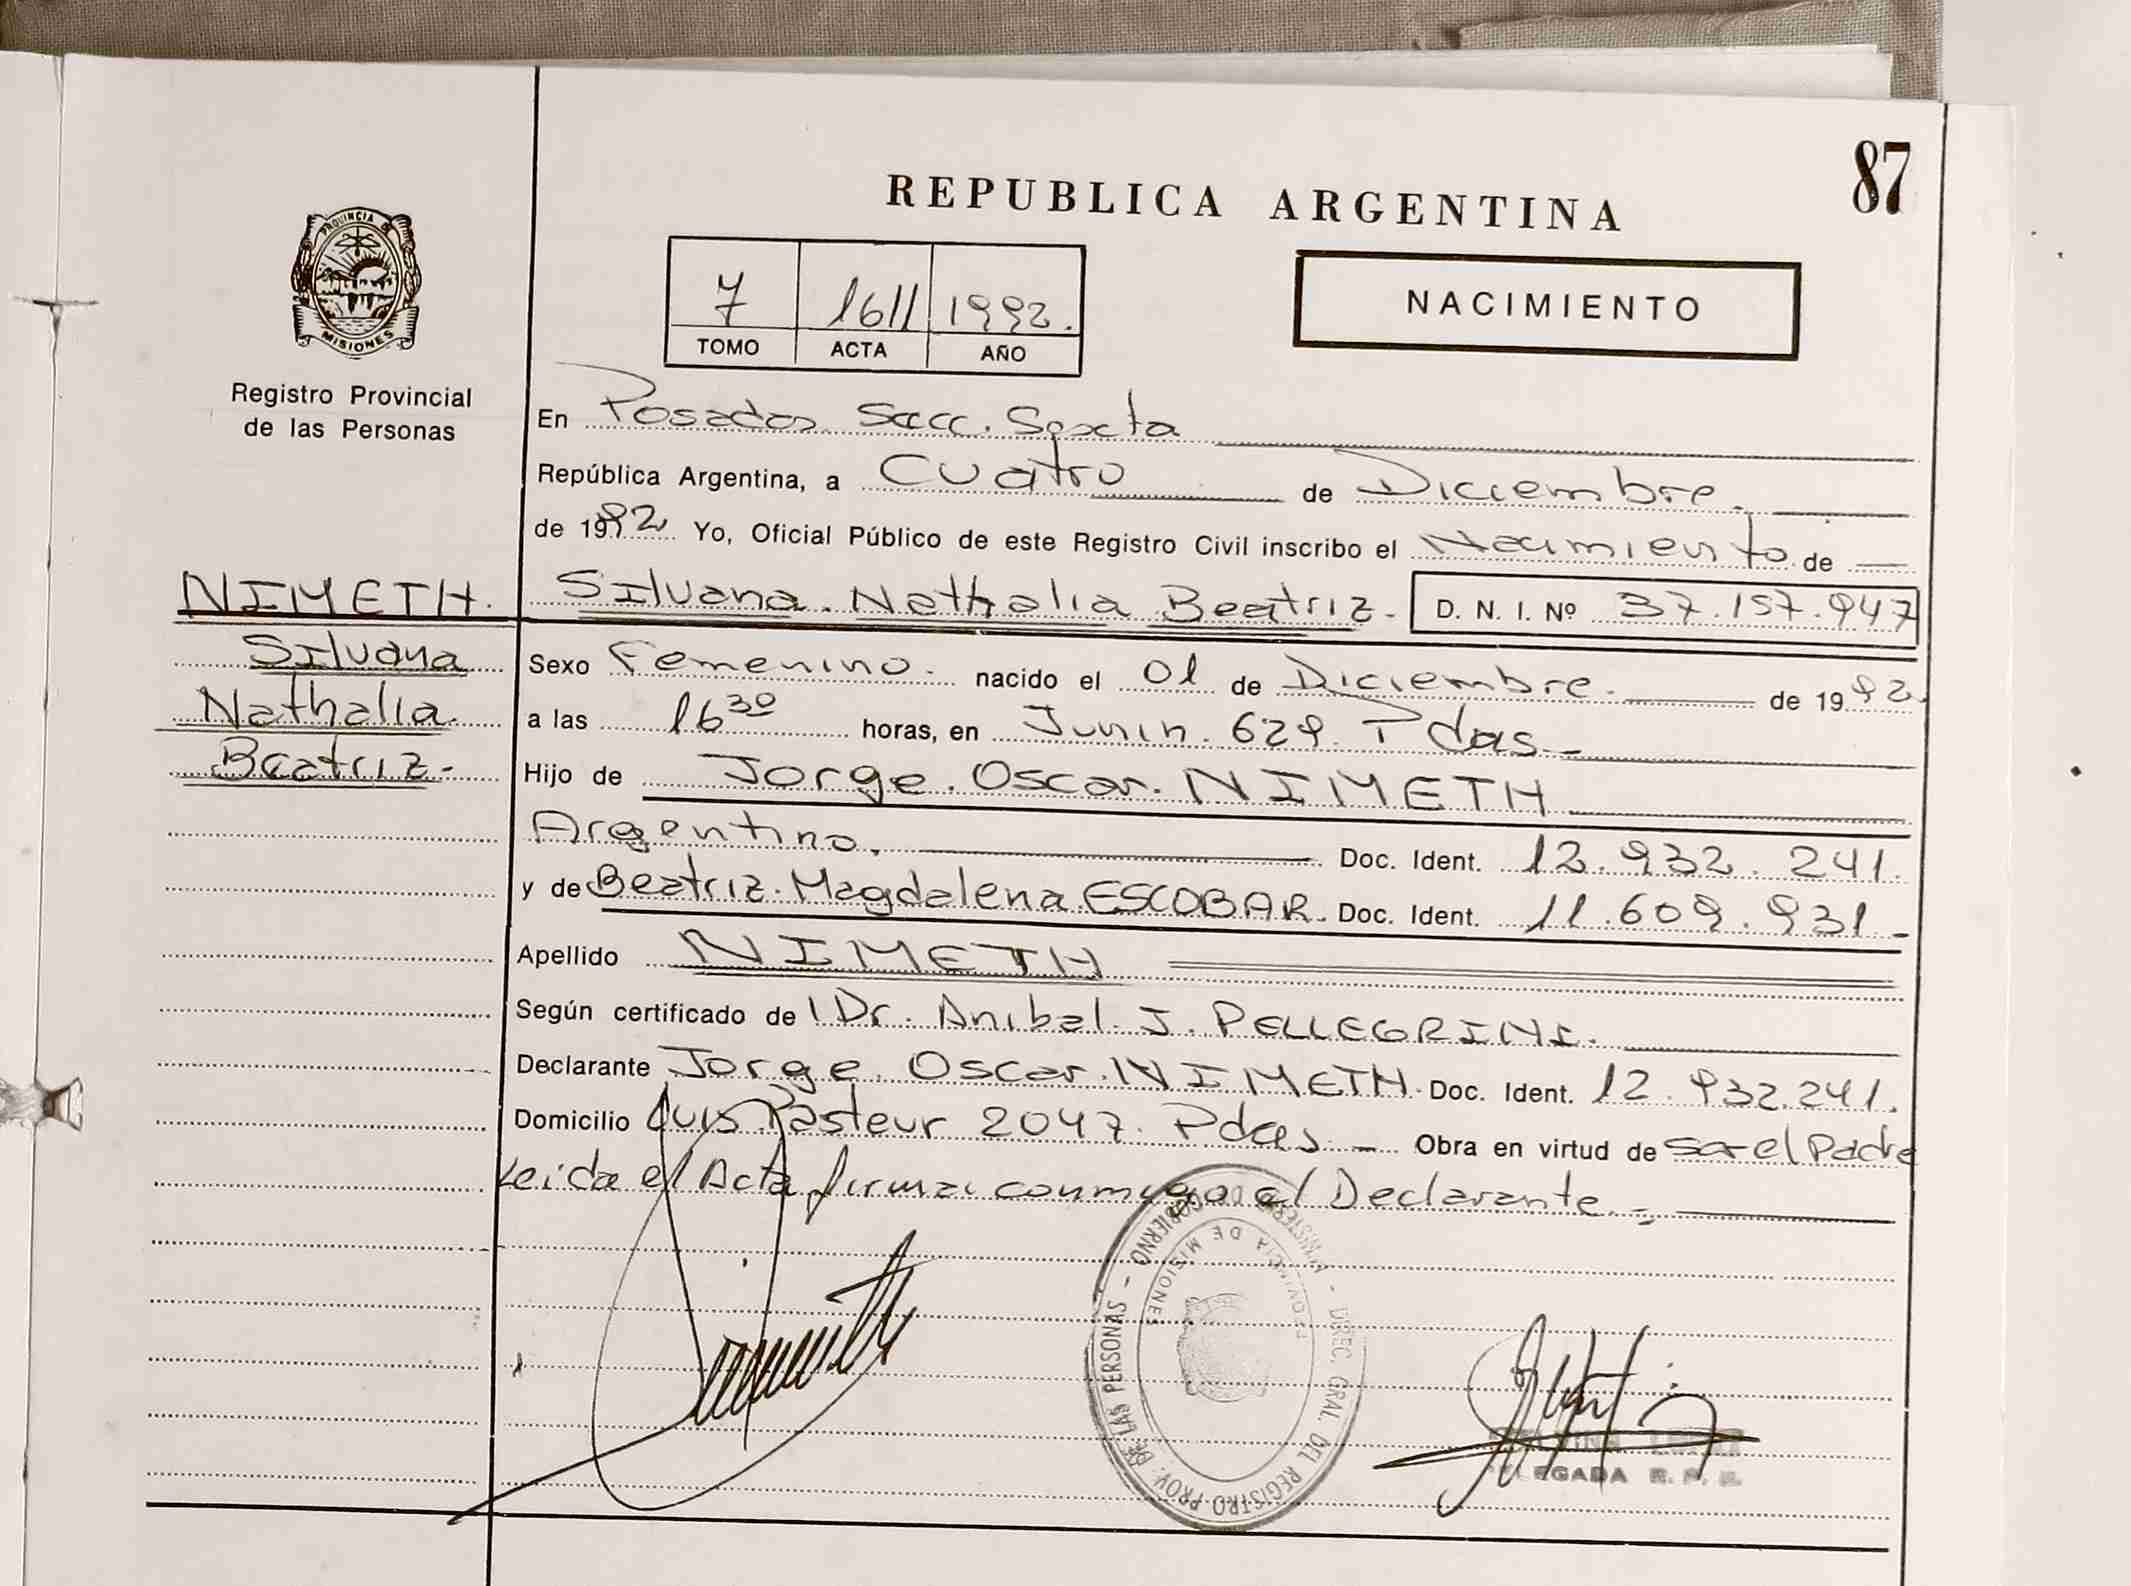 87
REPUBLICA ARGENTINA
PROVINCIA DE
MISIONES
Registro Provincial
de las Personas
7 1611 1992.
TOMO ACTA AÑO
NACIMIENTO
En Posadas Secc. Sexta
República Argentina, a Cuatro de Diciembre.
de 1992 Yo, Oficial Público de este Registro Civil inscribo el Nacimiento de
NIMETH. Silvana. Nathalia Beatriz. D. N. I. Nº 37.157.947
Silvana
Nathalia.
Beatriz.-
Sexo Femenino. nacido el 01 de Diciembre. de 1992.
a las 16 30 horas, en Junin. 629. Pdas.
Hijo de Jorge. Oscar. NIMETH
Argentino. Doc. Ident. 12.932.241.
y de Beatriz. Magdalena ESCOBAR. Doc. Ident. 11.609.931.-
Apellido NIMETH
Según certificado de l Dr. Anibal J. PELLEGRINI.
Declarante Jorge. Oscar. NIMETH. Doc. Ident. 12.932.241.
Domicilio Luis Pasteur 2047. Pdas. Obra en virtud de ser el Padre
Leida el Acta firma conmigo el Declarante.-
MINISTERIO DE GOBIERNO - DIREC. GRAL. DEL REGISTRO PROV. DE LAS PERSONAS -
PROVINCIA DE MISIONES
DELEGADA R. P.